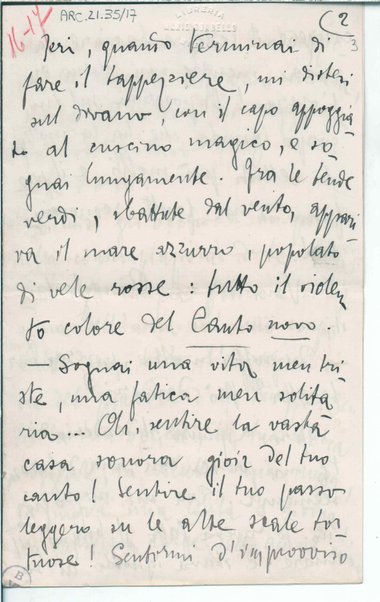 ARC.21.35/17
16-17
(2
3
Ieri, quando terminai di
fare il tappezziere, mi distesi
sul divano, con il capo appoggia
to al cuscino magico, e so
gnai lungamente. Fra le tende
verdi, sbattute dal vento, appari
va il mare azzurro, popolato
di vele rosse: tutto il violen
to colore del Canto novo.
— Sognai una vita men tri
ste, una fatica men solita
ria... Oh, sentire la vasta
casa sonora gioir del tuo
canto! Sentire il tuo passo
leggero su le alte scale tor
tuose! Sentirmi d'improvviso